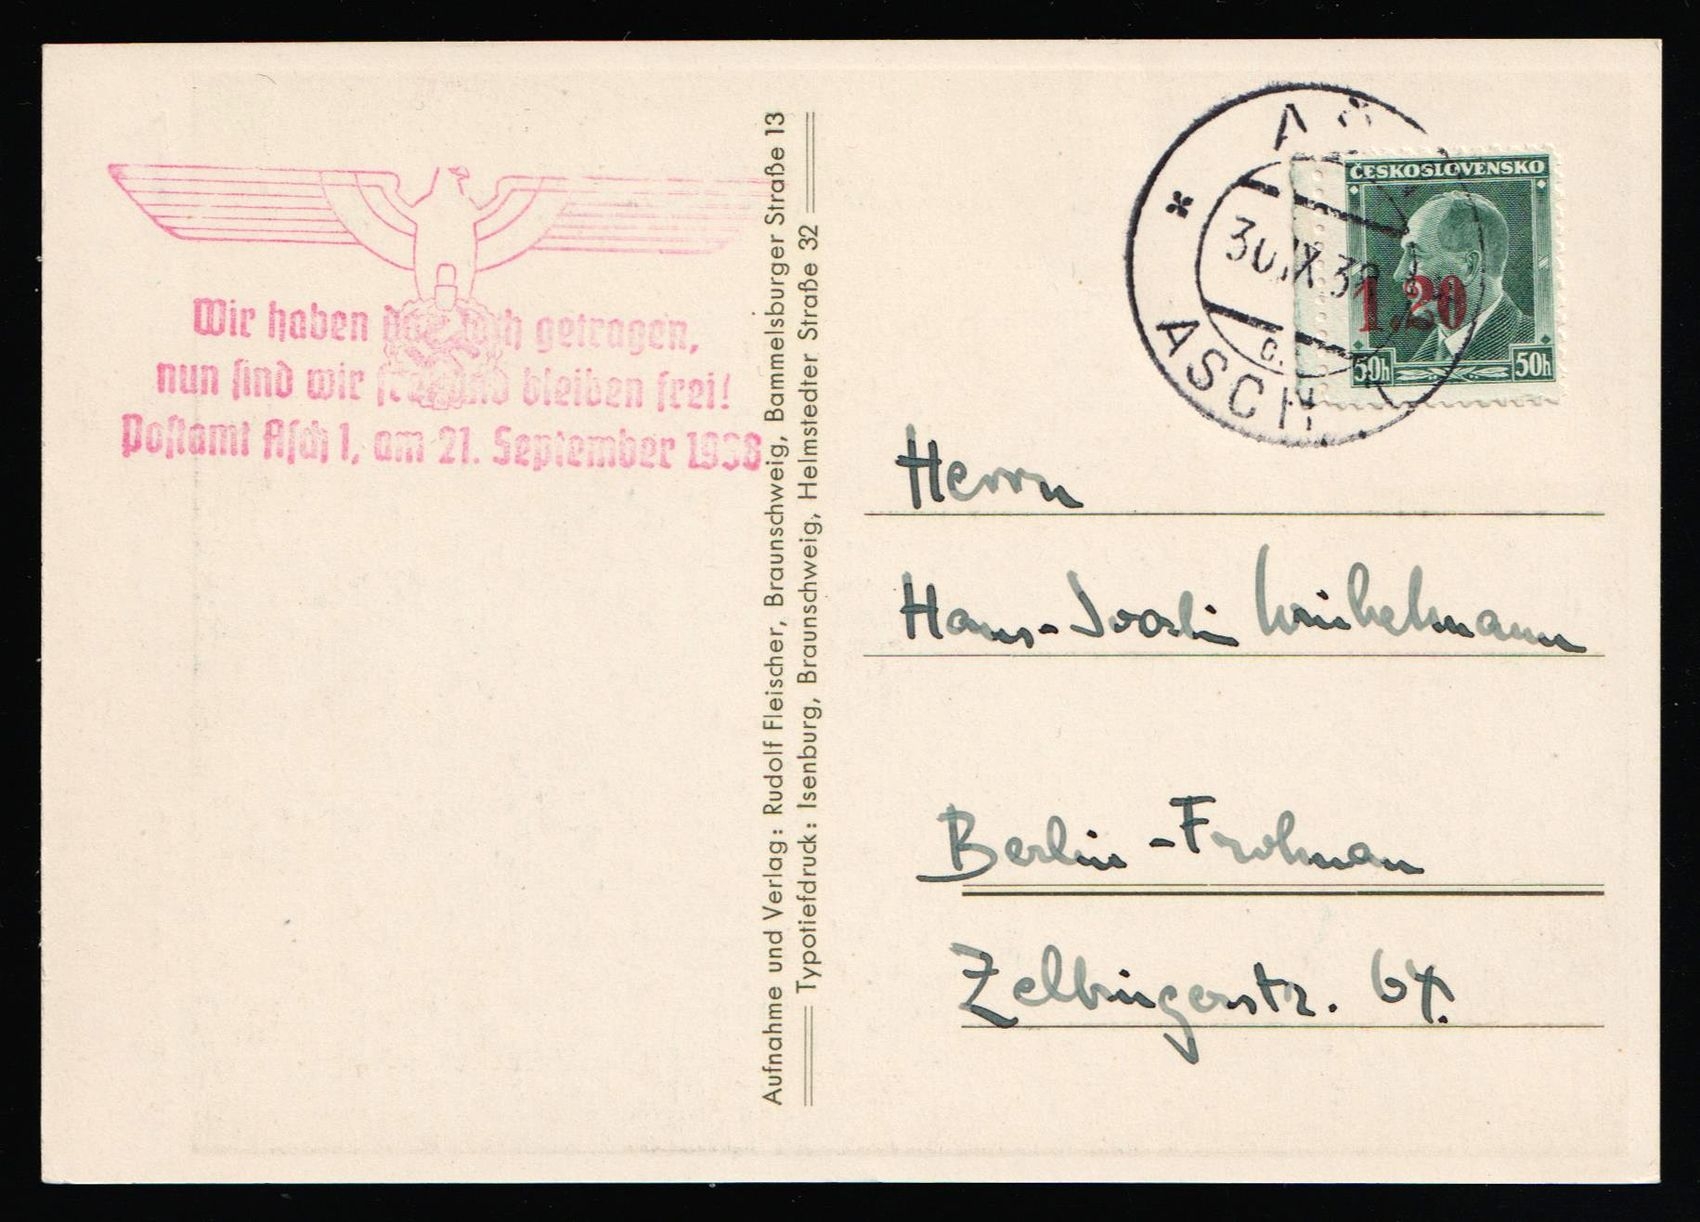 Wir haben das Joch getragen,
nun sind wir frei und bleiben frei!
Postamt Asch 1, am 21. September 1938
Aufnahme und Verlag: Rudolf Fleischer, Braunschweig, Bammelsburger Straße 13
Typotiefdruck: Isenburg, Braunschweig, Helmstedter Straße 32
AŠ
30.IX.38
ASCH
ČESKOSLOVENSKO
1.20
50h 50h
Herrn
Hans-Joachim
Berlin-Frohnau
Zeltingerstr. 64.